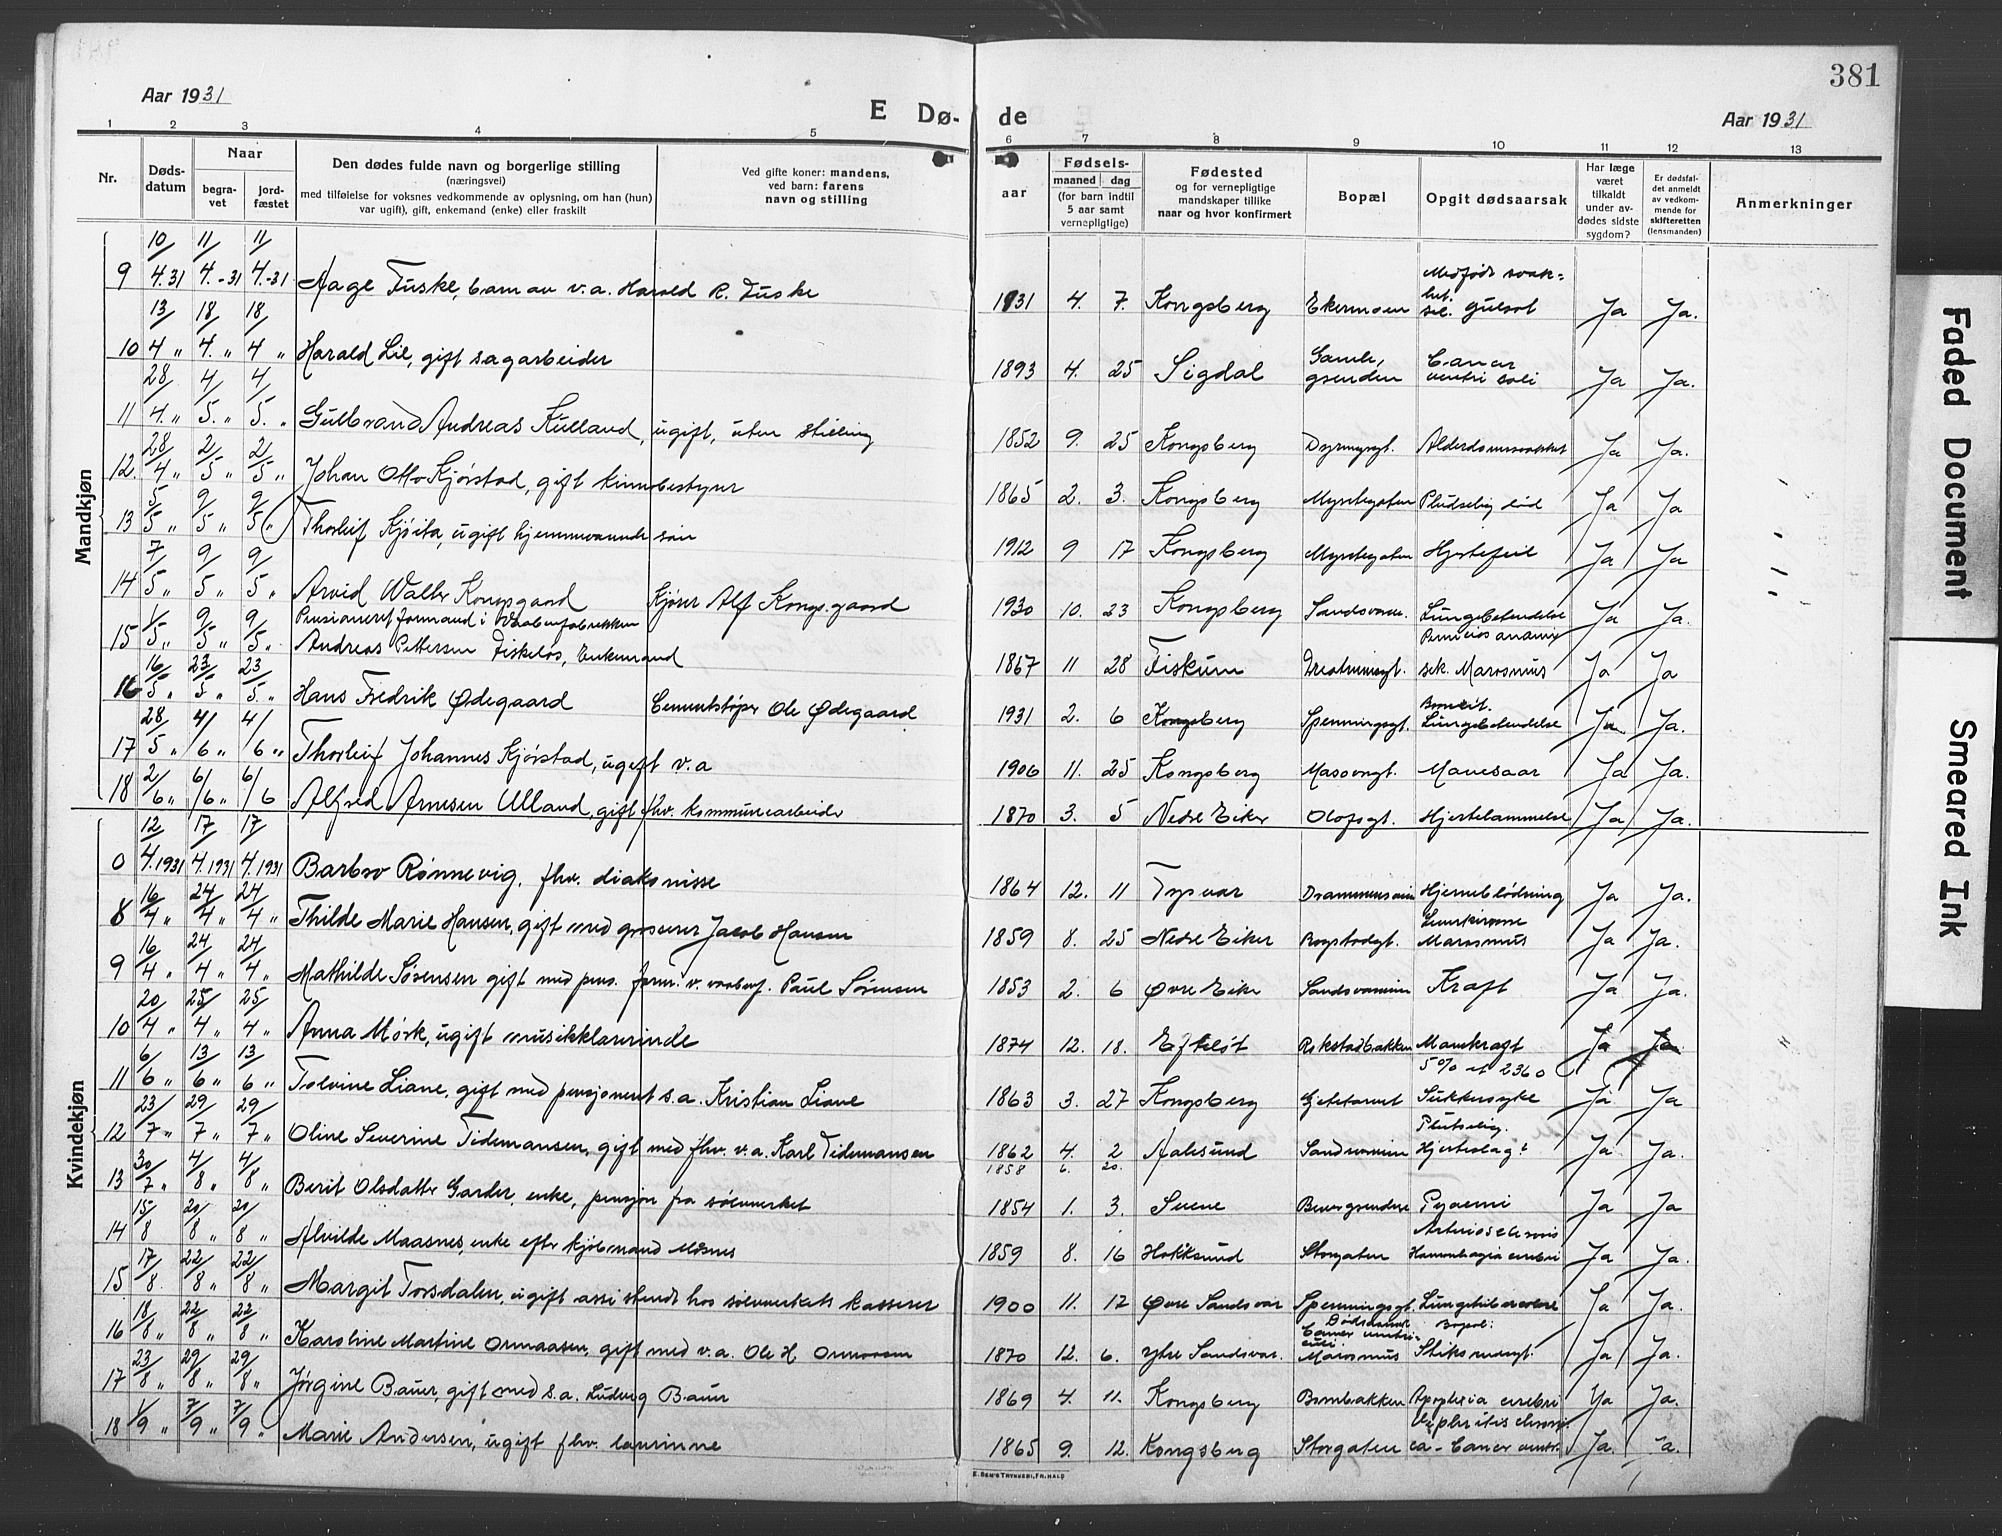 381
Aar 1931
E Dø- de
Aar 1931
1 2 3 4 5 6 7 8 9 10 11 12 13
Nr.
Døds-
datum
Naar
begra-
vet
jord-
fæstet
Den dødes fulde navn og borgerlige stilling
(næringsvei)
med tilføielse for voksnes vedkommende av oplysning, om han (hun)
var ugift), gift, enkemand (enke) eller fraskilt
Ved gifte koner: mandens,
ved barn: farens
navn og stilling
aar
Fødsels-
maaned dag
(for barn indtil
5 aar samt
vernepligtige)
Fødested
og for vernepligtige
mandskaper tillike
naar og hvor konfirmert
Bopæl
Opgit dødsaarsak
Har læge
været
tilkaldt
under av-
dødes sidste
sygdom?
Er dødsfal-
det anmeldt
av vedkom-
mende for
skifteretten
(lensmanden)
Anmerkninger
Mandkjøn
9 10/4.31 11/4.-31 11/4.-31 Aage Fuske, barn av v.a. Harald R. Fuske 1931 4. 7. Kongsberg Ekermoen Medfødt svak-
het. gulsot Ja Ja.
10 13/4 " 18/4. " 18/4 " Harald Lie, gift sagarbeider 1893 4. 25 Sigdal Gamle-
grenden Cancer
ventriculi Ja Ja.
11 28/4. " 4/5. " 4/5. " Gulbrand Andreas Kulland, ugift, uten stilling 1852 9. 25 Kongsberg Dyrmyrgt. Alderdomssvakhet Ja Ja.
12. 28/4 " 2/5 " 2/5 " Johan Otto Kjørstad, gift kinobestyrer 1865 2. 3. Kongsberg Myntegaten Pludselig død Ja Ja
13 5/5 " 9/5 " 9/5 " Thorleif Kjøita, ugift hjemmeværende søn 1912 9 17 Kongsberg Myntegaten Hjertefeil Ja Ja
14 7/5 " 9/5 " 9/5 " Arvid Walter Kongsgaard Kjører Alf Kongsgaard 1930 10. 23 Kongsberg Sandsværv. Lungebetendelse Ja Ja.
Pensioneret formand i Vaabenfabrikken
15 1/5 " 9/5 " 9/5 " Andreas Pettersen Fiskeløs, Enkemand 1867 11 28 Fiskum Drammensgt. Perniciøs anæmi
sek. Marasmus Ja Ja
16 16/5 " 23/5 " 23/5. " Hans Fredrik Ødegaard Cementstøper Ole Ødegaard 1931 2. 6 Kongsberg Spenningsgt. Bronkit.
Lungebetendelse Ja Ja.
17 28/5 " 4/6 " 4/6 " Thorleif Johannes Kjørstad, ugift v.a 1906 11. 25 Kongsberg Masovngt. Mavesaar Ja Ja.
18 2/6 " 6/6 " 6/6 Alfred Arnesen Ulland, gift fhv. kommunearbeider 1870 3. 5 Nedre Eiker Olafsgt. Hjertelammelse Ja Ja.
Kvindekjøn
0 12/4.1931 17/4.1931 17/4.1931 Barbro Rønnevig, fhv. diakonisse 1864 12. 11 Tysvær Drammensveien Hjerneblødning Ja Ja.
8 16/4 " 24/4 " 24/4 " Thilde Marie Hansen, gift med grosserer Jacob Hansen 1859 8. 25 Nedre Eiker Bogstadgt. Marasmus Ja Ja.
9 16/4 " 24/4 " 24/4 " Mathilde Sørensen gift med pens. form. v. vaabenf. Paul Sørensen 1853 2. 6 Øvre Eiker Sandsværveien Kræft Ja Ja.
10 20/4 " 25/4 " 25/4 " Anna Mørk, ugift musikklærerinde 1874 12. 18. Efteløt Rokstadbakken Mavekræft
5% av 2360 Ja Ja
11 6/6 " 13/6 " 13/6 " Tolvine Liane, gift med pensjonert s.a. Kristian Liane 1863 3. 27 Kongsberg Gjetetorvet Sukkersyke Ja Ja
12 23/7 " 29/7 " 29/7 " Oline Severine Tidemansen, gift med fhv. v.a. Karl Tidemansen 1862 4. 2 Aalesund Sandsværveien Plutselig.
Hjerteslag Ja Ja.
1858 6. 20.
13 30/7 " 4/8 " 4/8 " Berit Olsdatter Garder, enke, pensjon fra sølvverket 1854 1. 3. Svene Bevergrenden Pyæmi Ja Ja
14 15/8 20/8 " 20/8 " Alvilde Maasnes, enke efter kjøbmand Mosnes 1859 8. 16 Hokksund Storgaten Arteriosclerosis
Hæmorrhagia cerebri Ja Ja.
15 17/8. 22/8 " 22/8 " Margit Torsdalen, ugift assistent hos sølvverkets kasserer 1900 11. 17 Øvre Sandsvær Spenningsgt. Lungetuberculose Ja Ja.
16 18/8 " 22/8 " 22/8 " Karoline Martine Ormaasen, gift med v.a. Ole H. Ormaasen 1870 12. 6. Ytre Sandsvær. Dødsaarsak
Cancer ventri-
culi
Marasmus Bopæl:
Ja Ja.
17 23/8 " 29/8 " 29/8 " Jørgine Bauer, gift med s.a. Ludvig Bauer 1869 4. 11. Kongsberg Bombakken Apoplexia cerebri Ja Ja.
18 1/9 " 7/9 " 7/9 " Marie Andersen, ugift fhv. lærerinne 1865 9. 12. Kongsberg Storgaten Nephritis chron.
ca - Cancer ventr. Ja. Ja.
E. SEM'S TRYKKERI, FR.HALD
Faded Document
Smeared Ink